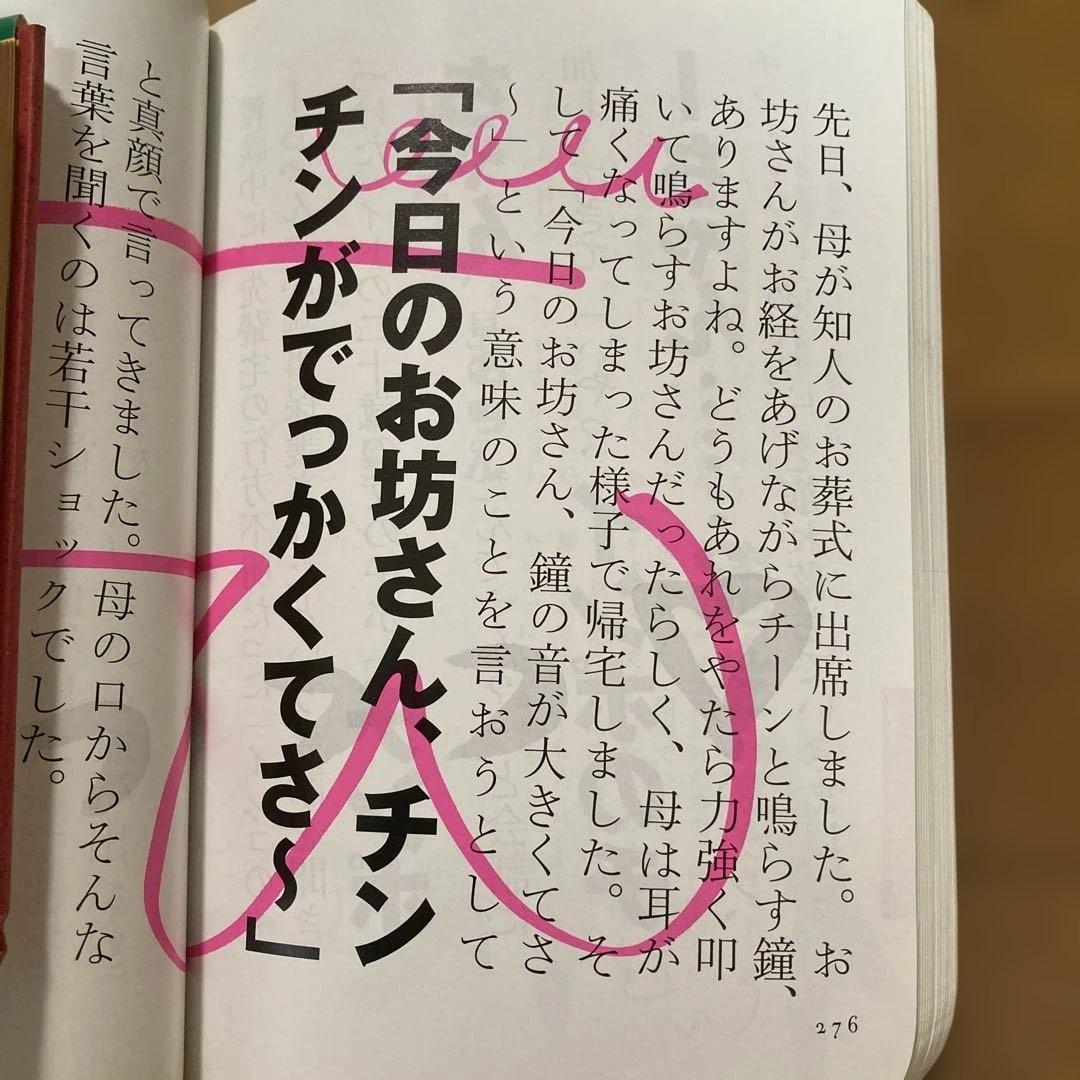 先日、母が知人のお葬式に出席しました。お
坊さんがお経をあげながらチーンと鳴らす鐘、
ありますよね。どうもあれをやたら力強く叩
いて鳴らすお坊さんだったらしく、母は耳が
痛くなってしまった様子で帰宅しました。そ
して「今日のお坊さん、鐘の音が大きくてさ
〜」という意味のことを言おうとして
「今日のお坊さん、チン
チンがでっかくてさ〜」
と真顔で言ってきました。母の口からそんな
言葉を聞くのは若干ショックでした。
276